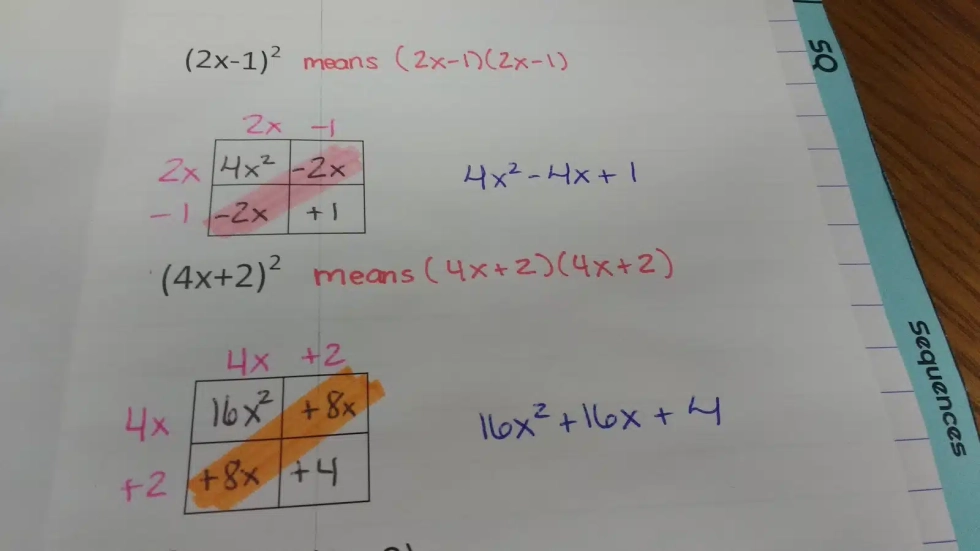 (2x-1)² means (2x-1)(2x-1)
2x -1
2x 4x² -2x
-1 -2x +1
4x² - 4x + 1
(4x+2)² means (4x+2)(4x+2)
4x +2
4x 16x² +8x
+2 +8x +4
16x² + 16x + 4
SQ
Sequences